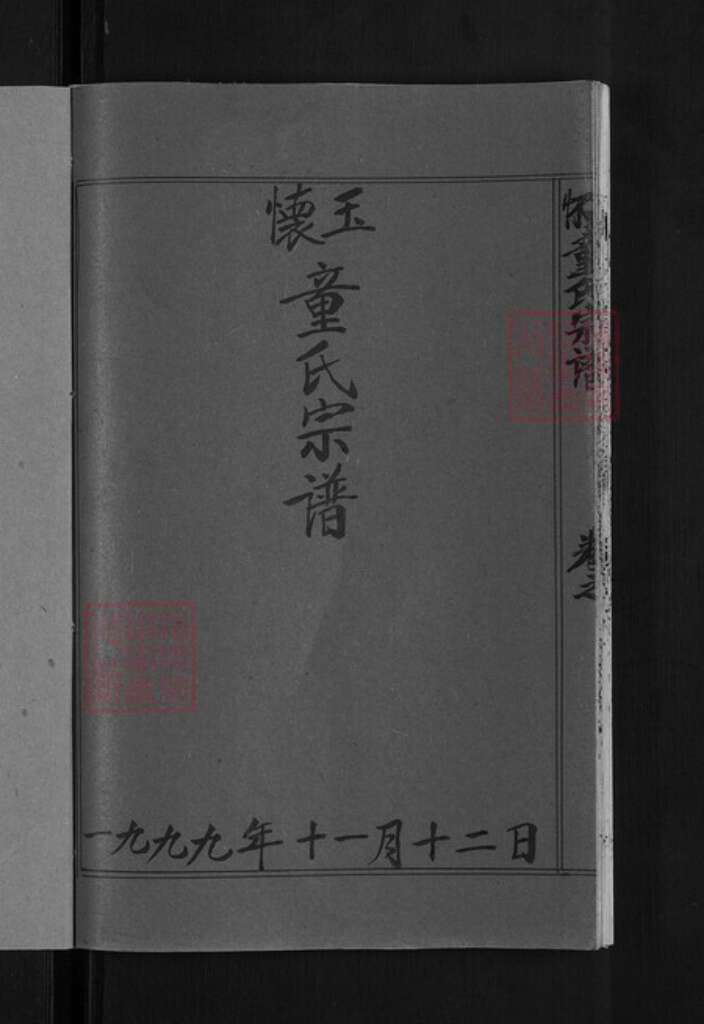 懷玉
童氏宗谱
一九九九年十一月十二日
怀
童氏宗谱
卷之